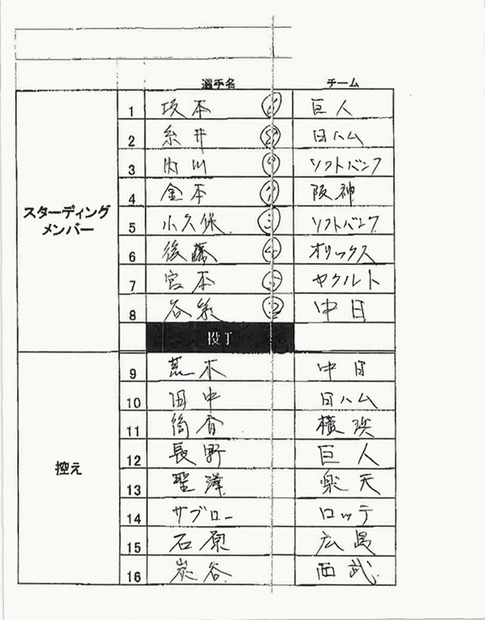 選手名 チーム
スターディング
メンバー
1 坂本 巨人
2 糸井 ⑧ 日ハム
3 内川 ⑨ ソフトバンク
4 金本 ⑦ 阪神
5 小久保 ③ ソフトバンク
6 後藤 ④ オリックス
7 宮本 ⑤ ヤクルト
8 谷繁 ② 中日
投丁
控え
9 荒木 中日
10 田中 日ハム
11 筒香 横浜
12 長野 巨人
13 聖澤 楽天
14 サブロー ロッテ
15 石原 広島
16 炭谷 西武